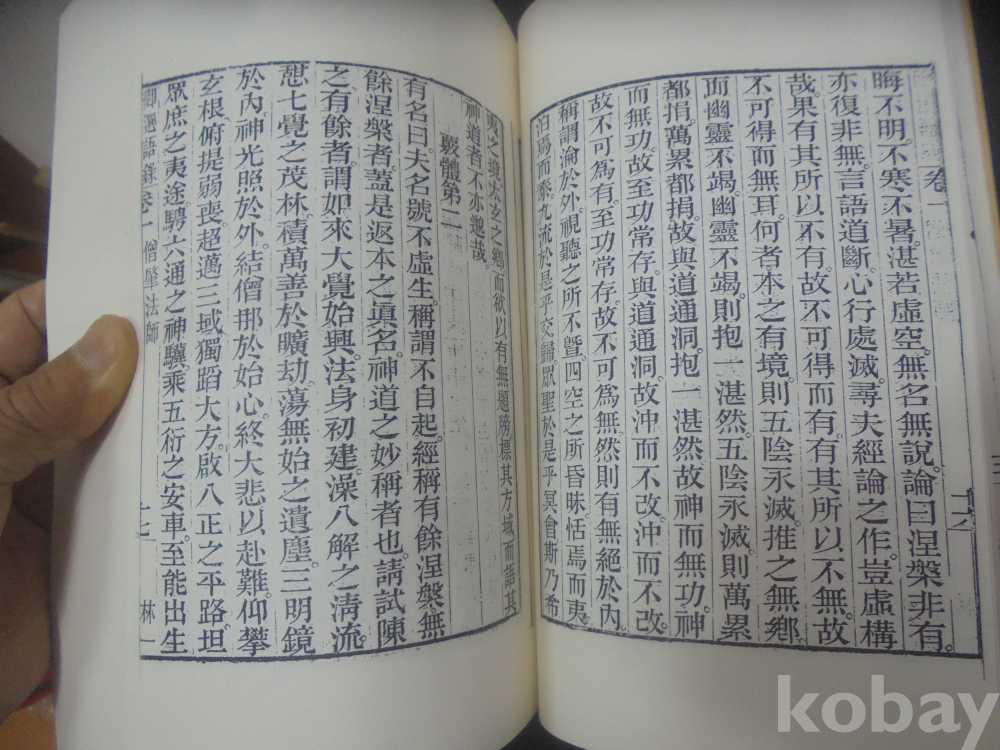 卷一
十六
晦不明。不寒不暑。湛若虛空。無名無說。論曰涅槃非有。
亦復非無。言語道斷。心行處滅。尋夫經論之作。豈虛構
哉。果有其所以不有。故不可得而有。有其所以不無。故
不可得而無耳。何者。本之有境。則五陰永滅。推之無鄉。
而幽靈不竭。幽靈不竭。則抱一湛然。五陰永滅。則萬累
都捐。萬累都捐。故與道通洞。抱一湛然。故神而無功。神
而無功。故至功常存。與道通洞。故沖而不改。沖而不改。
故不可為有。至功常存。故不可爲無。然則有無絕於內。
稱謂淪於外。視聽之所不曁。四空之所昏昧。恬焉而夷
泊焉而泰。九流於是乎交歸。眾聖於是乎冥會。斯乃希
夷之境。太玄之鄉。而欲以有無題牓標其方域。而語其
神道者。不亦邈哉。
覈體第二
有名曰。夫名號不虛生。稱謂不自起。經稱有餘涅槃。無
餘涅槃者。蓋是返本之眞名。神道之妙稱者也。請試陳
之。有餘者。謂如來大覺始興。法身初建。澡八解之清流
憇七覺之茂林。積萬善於曠劫。蕩無始之遺塵。三明鏡
於內。神光照於外。結僧那於始心。終大悲以赴難。仰攀
玄根。俯提弱喪。超邁三域。獨蹈大方。啟八正之平路。坦
眾庶之夷途。騁六通之神驥。乘五衍之安車。至能出生
御選語錄卷一 僧肇法師
十七
林一
kobay